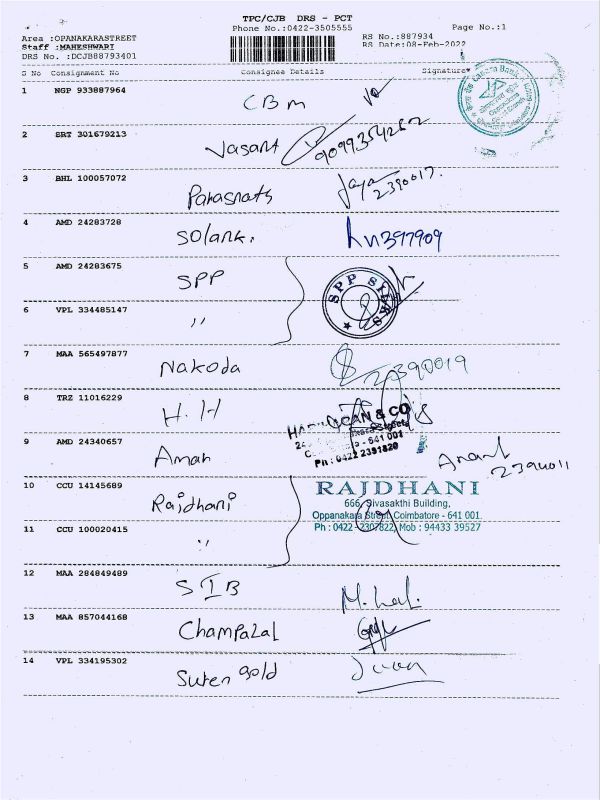 TPC/CJB DRS - PCT
Phone No.:0422-3505555
Page No.:1
Area :OPANAKARASTREET
RS No.:887934
Staff :MAHESHWARI
RS Date:08-Feb-2022
DRS No. :DCJB88793401
S No Consignment No Consignee Details Signature
1 NGP 933887964 CBM
Canara Bank
2 SRT 301679213 Vasant
3 BHL 100057072 Parasnath Jaya 2390017.
4 AMD 24283728 Solanki
5 AMD 24283675 SPP
SPP SILKS
6 VPL 334485147 "
7 MAA 565497877 Nakoda 2390019
8 TRZ 11016229 H.H
& CO
- 641 001
Ph : 0422 2391820
9 AMD 24340657 Aman Anant
10 CCU 14145689 Rajdhani
RAJDHANI
666, Sivasakthi Building,
Oppanakara Street, Coimbatore - 641 001.
Ph : 0422 - 2307822, Mob : 94433 39527
11 CCU 100020415 "
12 MAA 284849489 SIB
13 MAA 857044168 Champalal
14 VPL 334195302 Suren gold